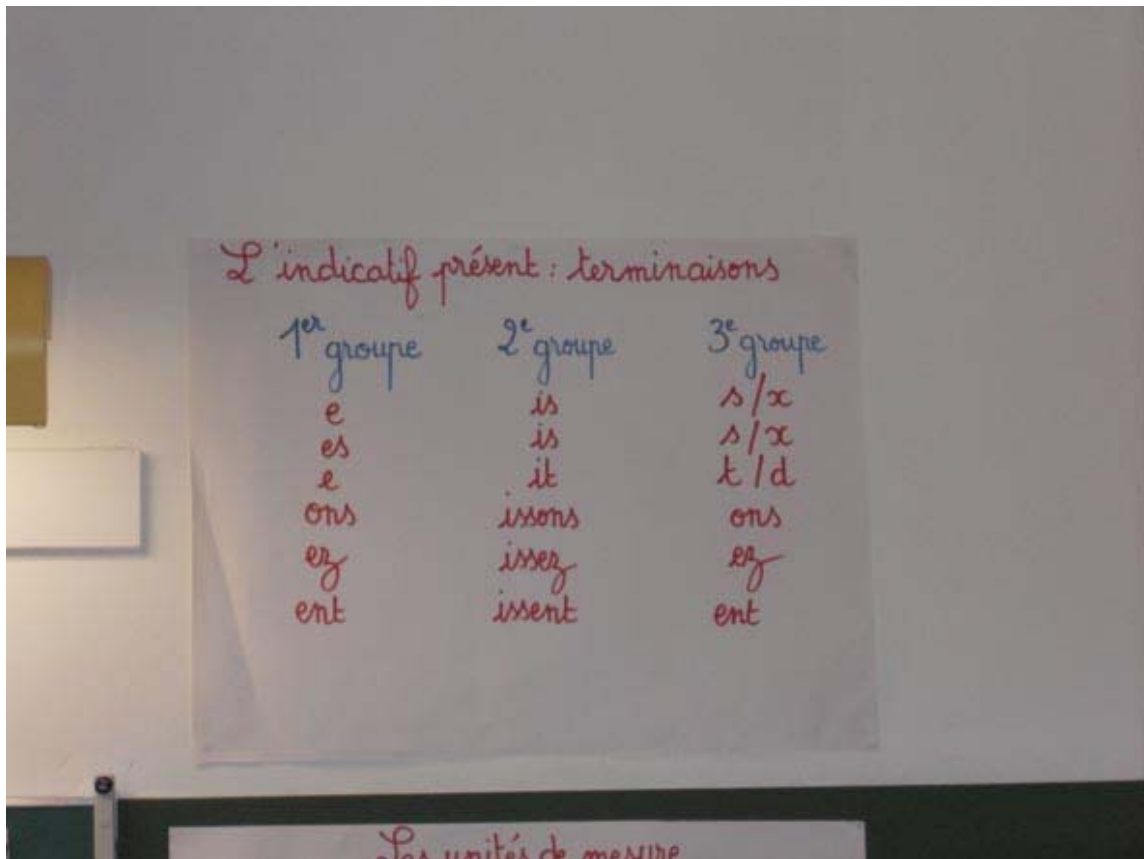 L'indicatif présent : terminaisons
1er groupe 2e groupe 3e groupe
e is s/x
es is s/x
e it t/d
ons issons ons
ez issez ez
ent issent ent
Les unités de mesure